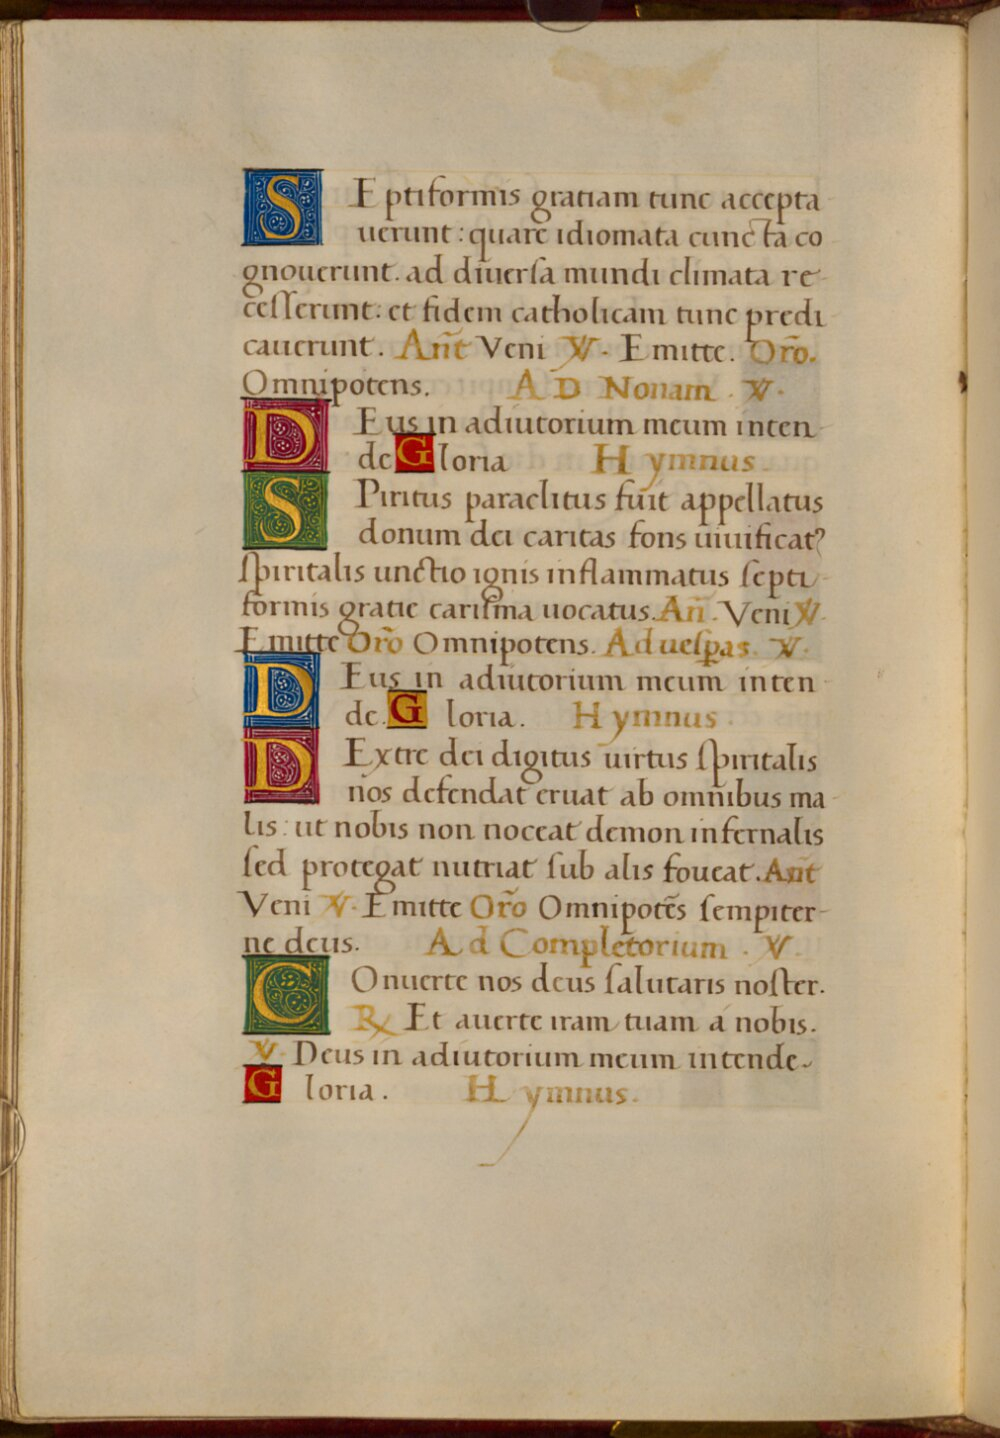 SEptiformis gratiam tunc accepta
uerunt: quare idiomata cuncta co
gnouerunt. ad diuersa mundi climata re-
cesserunt: et fidem catholicam tunc predi
cauerunt. Añt Veni ℣. Emitte. Orõ.
Omnipotens. AD Nonam. ℣.
DEus in adiutorium meum inten-
de Gloria Hymnus.
SPiritus paraclitus fuit appellatus
donum dei caritas fons uiuificat?
spiritalis unctio ignis inflammatus septi-
formis gratie carisma uocatus. Añ. Veni ℣.
Emitte Orõ Omnipotens. Ad uesp̱as. ℣.
DEus in adiutorium meum inten
de. Gloria. Hymnus
DExtre dei digitus uirtus spiritalis
nos defendat eruat ab omnibus ma-
lis: ut nobis non noceat demon infernalis
sed protegat nutriat sub alis foueat. Añt
Veni ℣. Emitte Orõ Omnipotẽs sempiter-
ne deus. Ad Completorium. ℣.
COnuerte nos deus salutaris noster.
℟ Et auerte iram tuam a nobis.
℣. Deus in adiutorium meum intende.
Gloria. Hymnus.